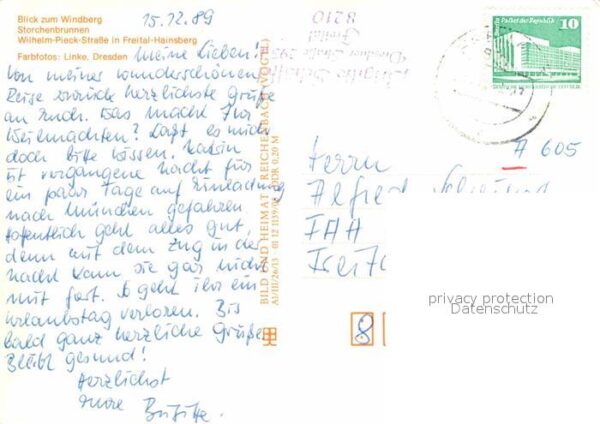 Blick zum Windberg
Storchenbrunnen
Wilhelm-Pieck-Straße in Freital-Hainsberg
Farbfotos: Linke, Dresden
15.12.89
Meine Lieben!
Von meiner wunderschönen
Reise zurück herzlichste Grüße
an Euch. Was macht Ihr
Weihnachten? Laßt es mich
doch bitte wissen.
ist vergangene Nacht für
ein paar Tage auf Einladung
nach München gefahren
hoffentlich geht alles gut,
denn mit dem Zug in der
Nacht kam sie gar nicht
mit fort. So geht ihr ein
Urlaubstag verloren. Bis
bald ganz herzliche Grüße
Bleibt gesund!
Herzlichst
Eure Brigitte.
BILD UND HEIMAT REICHENBACH (VOGTL)
A1/III/26/13 01 12 1139/ DDR 0,20 M
8210
Freital
Dresdner Straße 295
Palast der Republik 10
A 605
Herrn
Alfred
privacy protection
Datenschutz
8